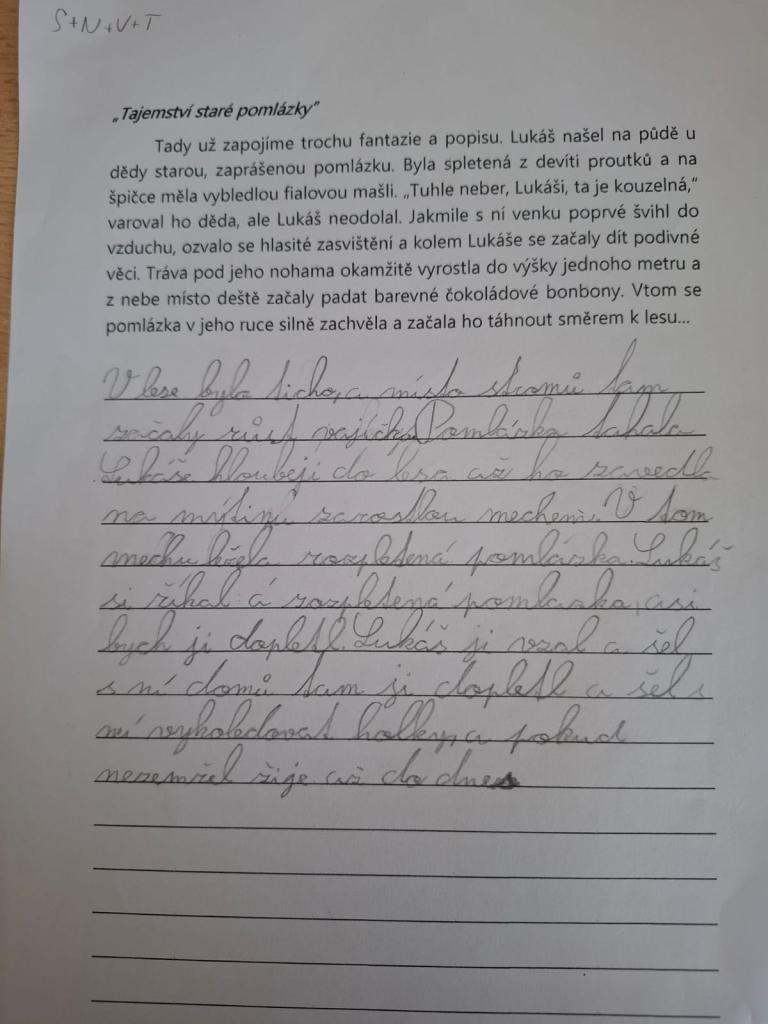 S+N+V+T
„Tajemství staré pomlázky"
Tady už zapojíme trochu fantazie a popisu. Lukáš našel na půdě u
dědy starou, zaprášenou pomlázku. Byla spletená z devíti proutků a na
špičce měla vybledlou fialovou mašli. „Tuhle neber, Lukáši, ta je kouzelná,"
varoval ho děda, ale Lukáš neodolal. Jakmile s ní venku poprvé švihl do
vzduchu, ozvalo se hlasité zasvištění a kolem Lukáše se začaly dít podivné
věci. Tráva pod jeho nohama okamžitě vyrostla do výšky jednoho metru a
z nebe místo deště začaly padat barevné čokoládové bonbony. Vtom se
pomlázka v jeho ruce silně zachvěla a začala ho táhnout směrem k lesu...
V lese bylo ticho, a místo stromů tam
začaly růst vajíčka. Pomlázka tahala
Lukáše hlouběji do lesa až ho zavedla
na mýtinu zarostlou mechem. V tom
mechu ležela rozpletená pomlázka. Lukáš
si říkal á rozpletená pomlazka, asi
bych ji dopletl. Lukáš ji vzal a šel
s ní domů tam ji dopletl a šel s
ní vykoledovat holky, a pokud
nezemřel žije až do dnes